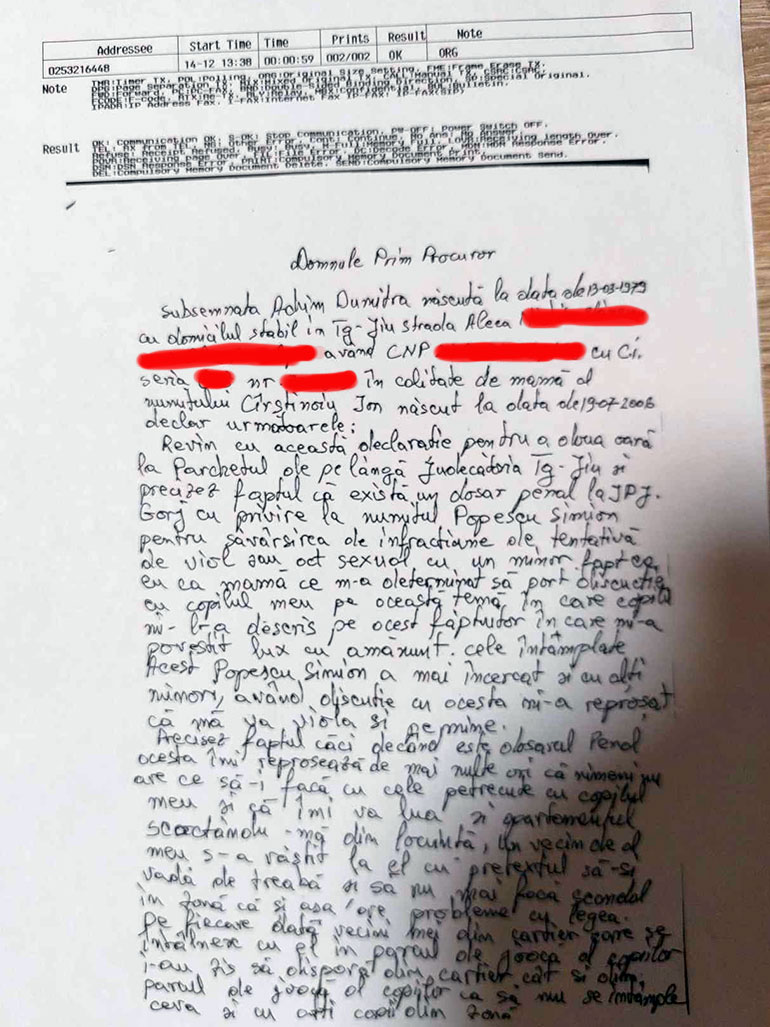 Addressee Start Time Time Prints Result Note
0253216448 14-12 13:38 00:00:59 002/002 OK ORG
Note
Result OK: Communication OK, S-OK: Stop Communication, PW-OFF: Power Switch OFF,
Domnule Prim Procuror
Subsemnata Achim Dumitra născută la data de 13-03-1979
cu domiciliul stabil in Tg-Jiu strada Aleea
având CNP cu Ci.
seria nr. în calitate de mamă al
numitului Cîrstinoiu Ion născut la data de 19-07-2006
declar urmatoarele:
Revin cu această declaratie pentru a doua oară
la Parchetul de pe lângă Judecătoria Tg-Jiu si
precizez faptul că există un dosar penal la IPJ.
Gorj cu privire la numitul Popescu Simion
pentru săvârsirea de infractiune de tentativă
de viol sau act sexual cu un minor. fapt ce,
eu ca mamă ce m-a determinat să port discutie
cu copilul meu pe această temă, în care copilul
mi-l-a descris pe acest făptuitor in care mi-a
povestit lux cu amănunt. cele întâmplate
Acest Popescu Simion a mai încercat si cu alti
minori, având discutie cu acesta mi-a reproșat
că mă va viola si pe mine.
Precizez faptul căci decând este dosarul Penal
acesta îmi reprosează de mai multe ori că nimeni nu
are ce să-i facă cu cele petrecute cu copilul
meu si că îmi va lua si apartamentul
scoctându-mă din locuintă, Un vecin de al
meu s-a răstit la el cu pretextul să-si
vadă de treabă si sa nu mai facă scandal
în zonă că si asa are probleme cu legea.
Pe fiecare dată vecini mei din cartier care se
întâlnesc cu el in parcul de joacă al copiilor
i-au zis să dispară din cartier cât si din
parcul de joacă al copiilor ca să nu se întâmple
ceva si cu alti copii din zonă